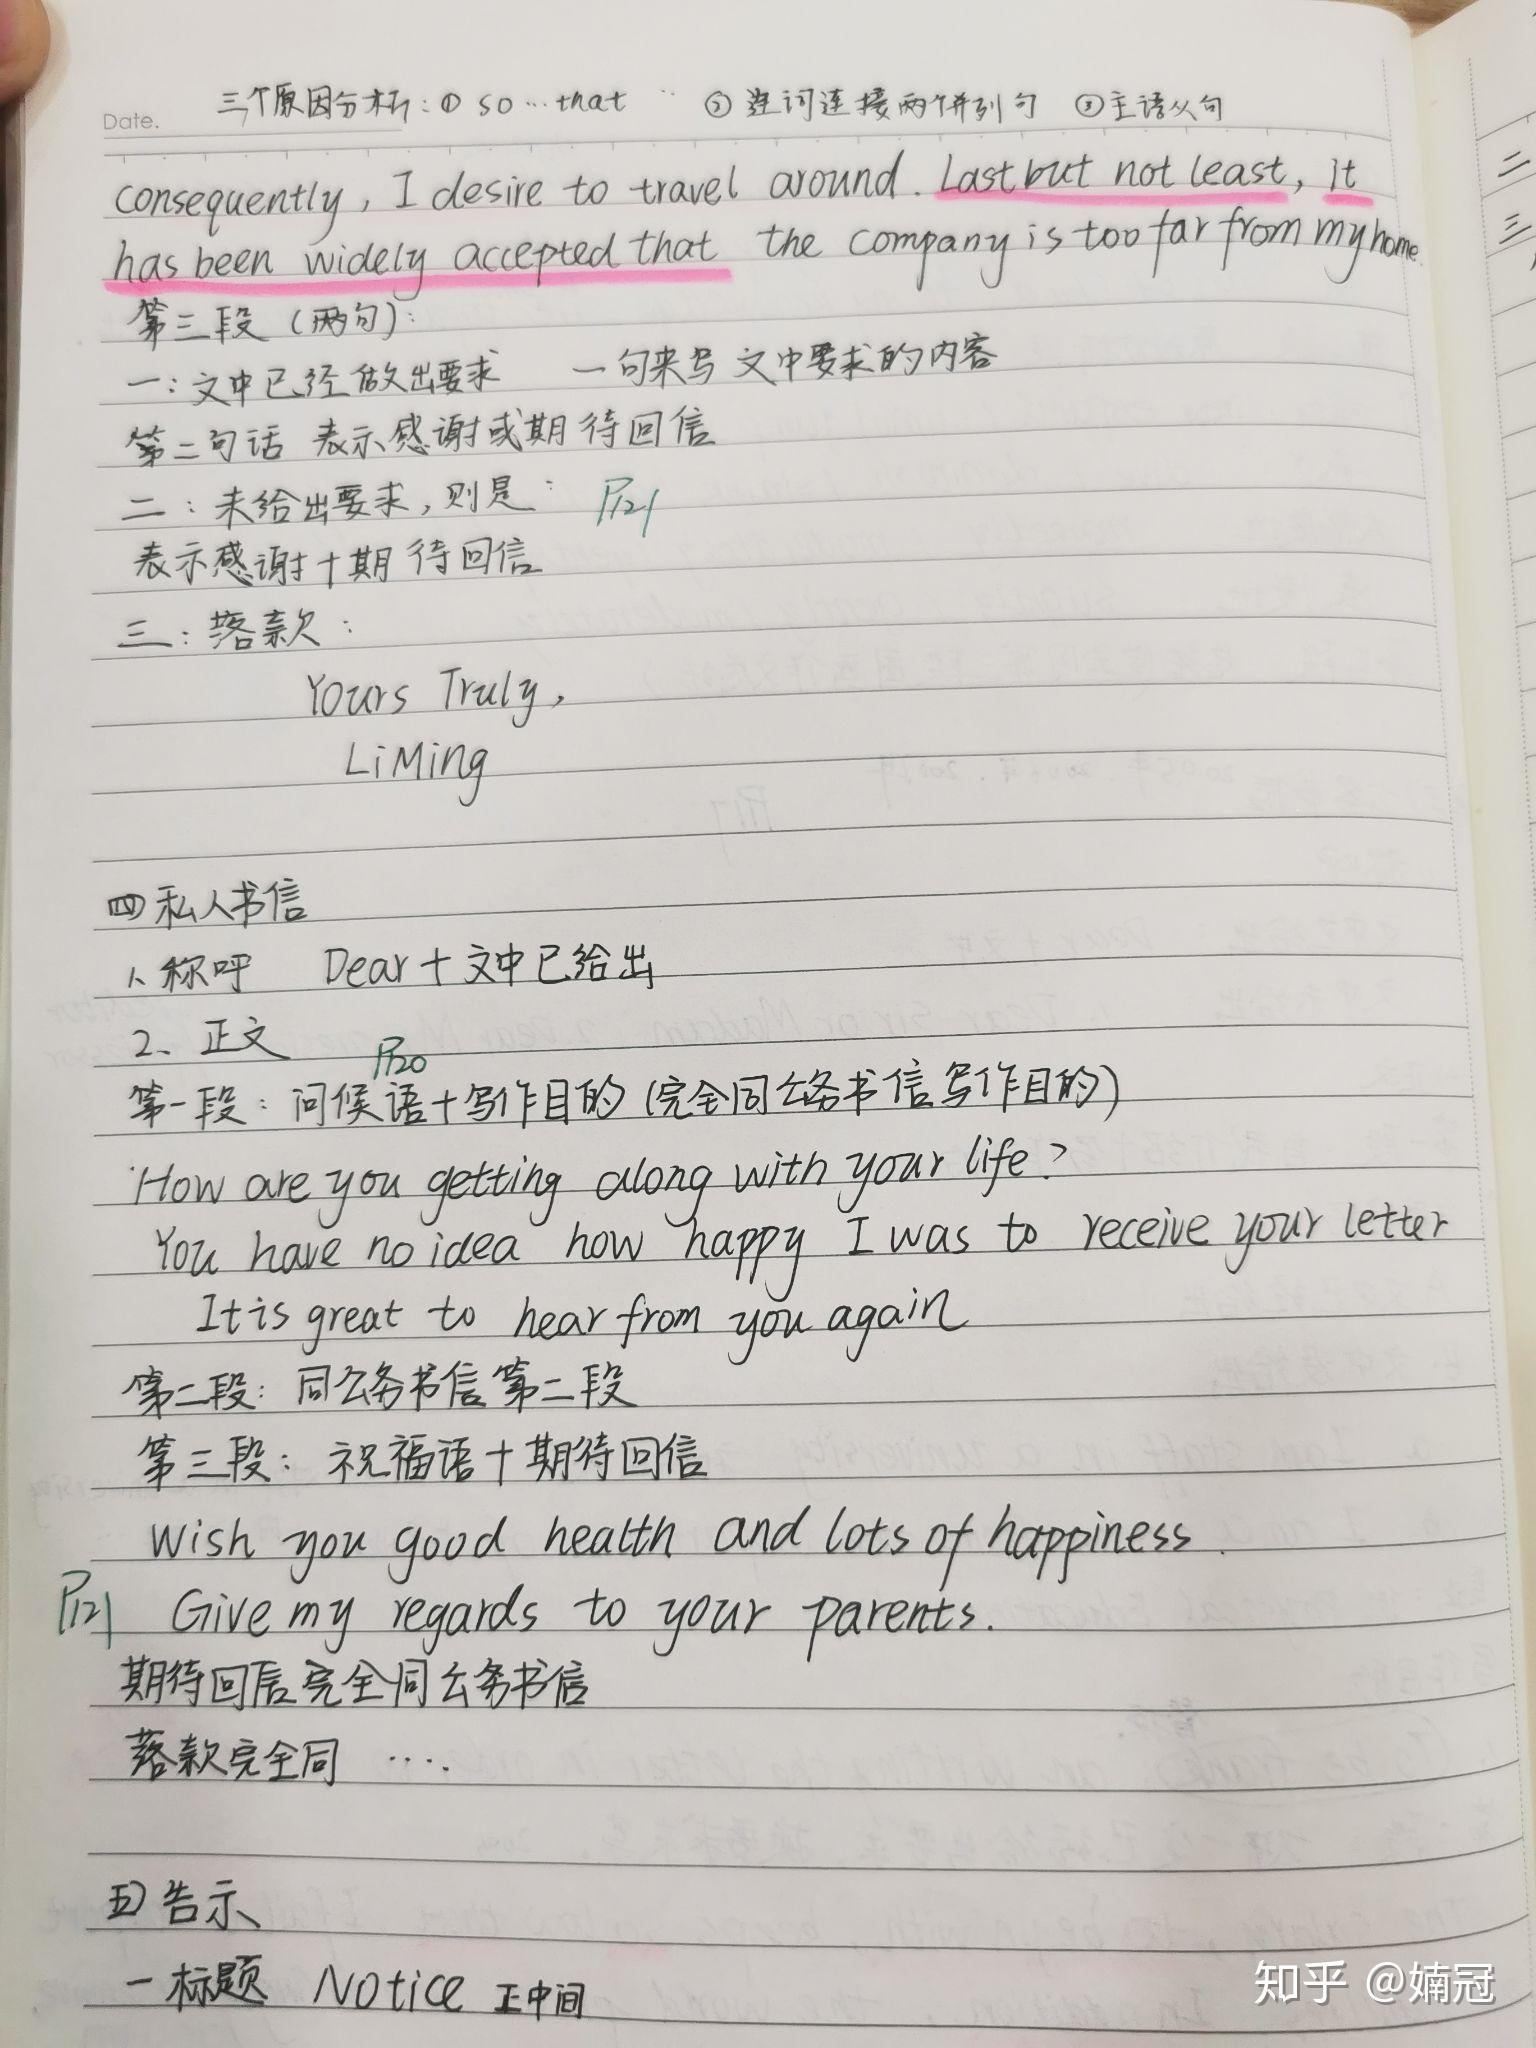 三个原因分析：① so…that ② 连词连接两个并列句 ③主语从句
Date.
consequently, I desire to travel around. Last but not least, it
has been widely accepted that the company is too far from my home.
第三段（两句）：
一：文中已经做出要求 一句来写文中要求的内容
第二句话 表示感谢或期待回信
二：未给出要求，则是： P121
表示感谢＋期待回信
三：落款：
Yours Truly,
LiMing
四 私人书信
1、称呼 Dear＋文中已给出
2、正文
P120
第一段：问候语＋写作目的（完全同公务书信写作目的）
How are you getting along with your life?
You have no idea how happy I was to receive your letter
It is great to hear from you again
第二段：同公务书信第二段
第三段：祝福语＋期待回信
Wish you good health and lots of happiness.
P121 Give my regards to your parents.
期待回信完全同公务书信
落款完全同 ····
五）告示
一 标题 Notice 正中间
知乎 @婻冠
二
三